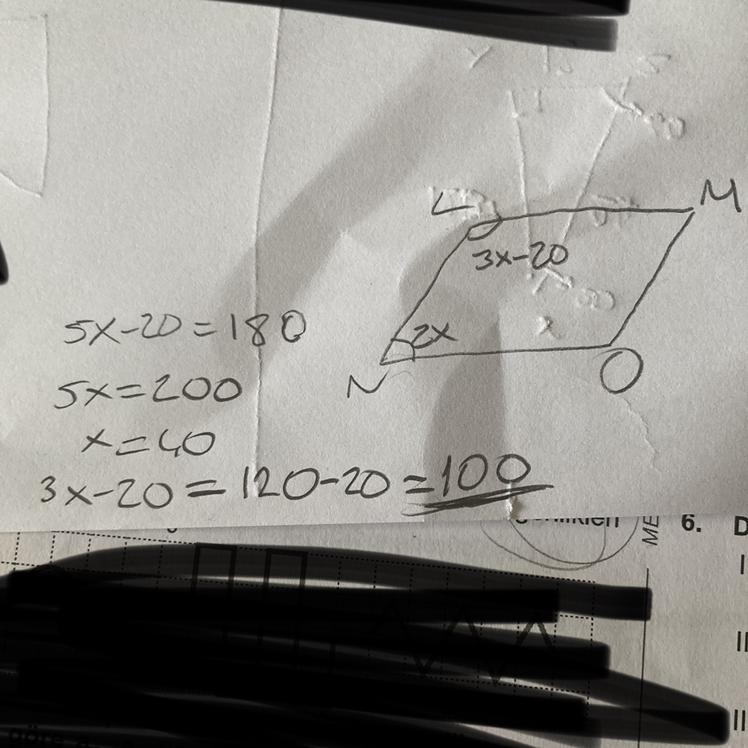 L
M
3x-20
2x
N
O
5x-20=180
5x=200
x=40
3x-20=120-20=100
ME
6.
D
I
II
II